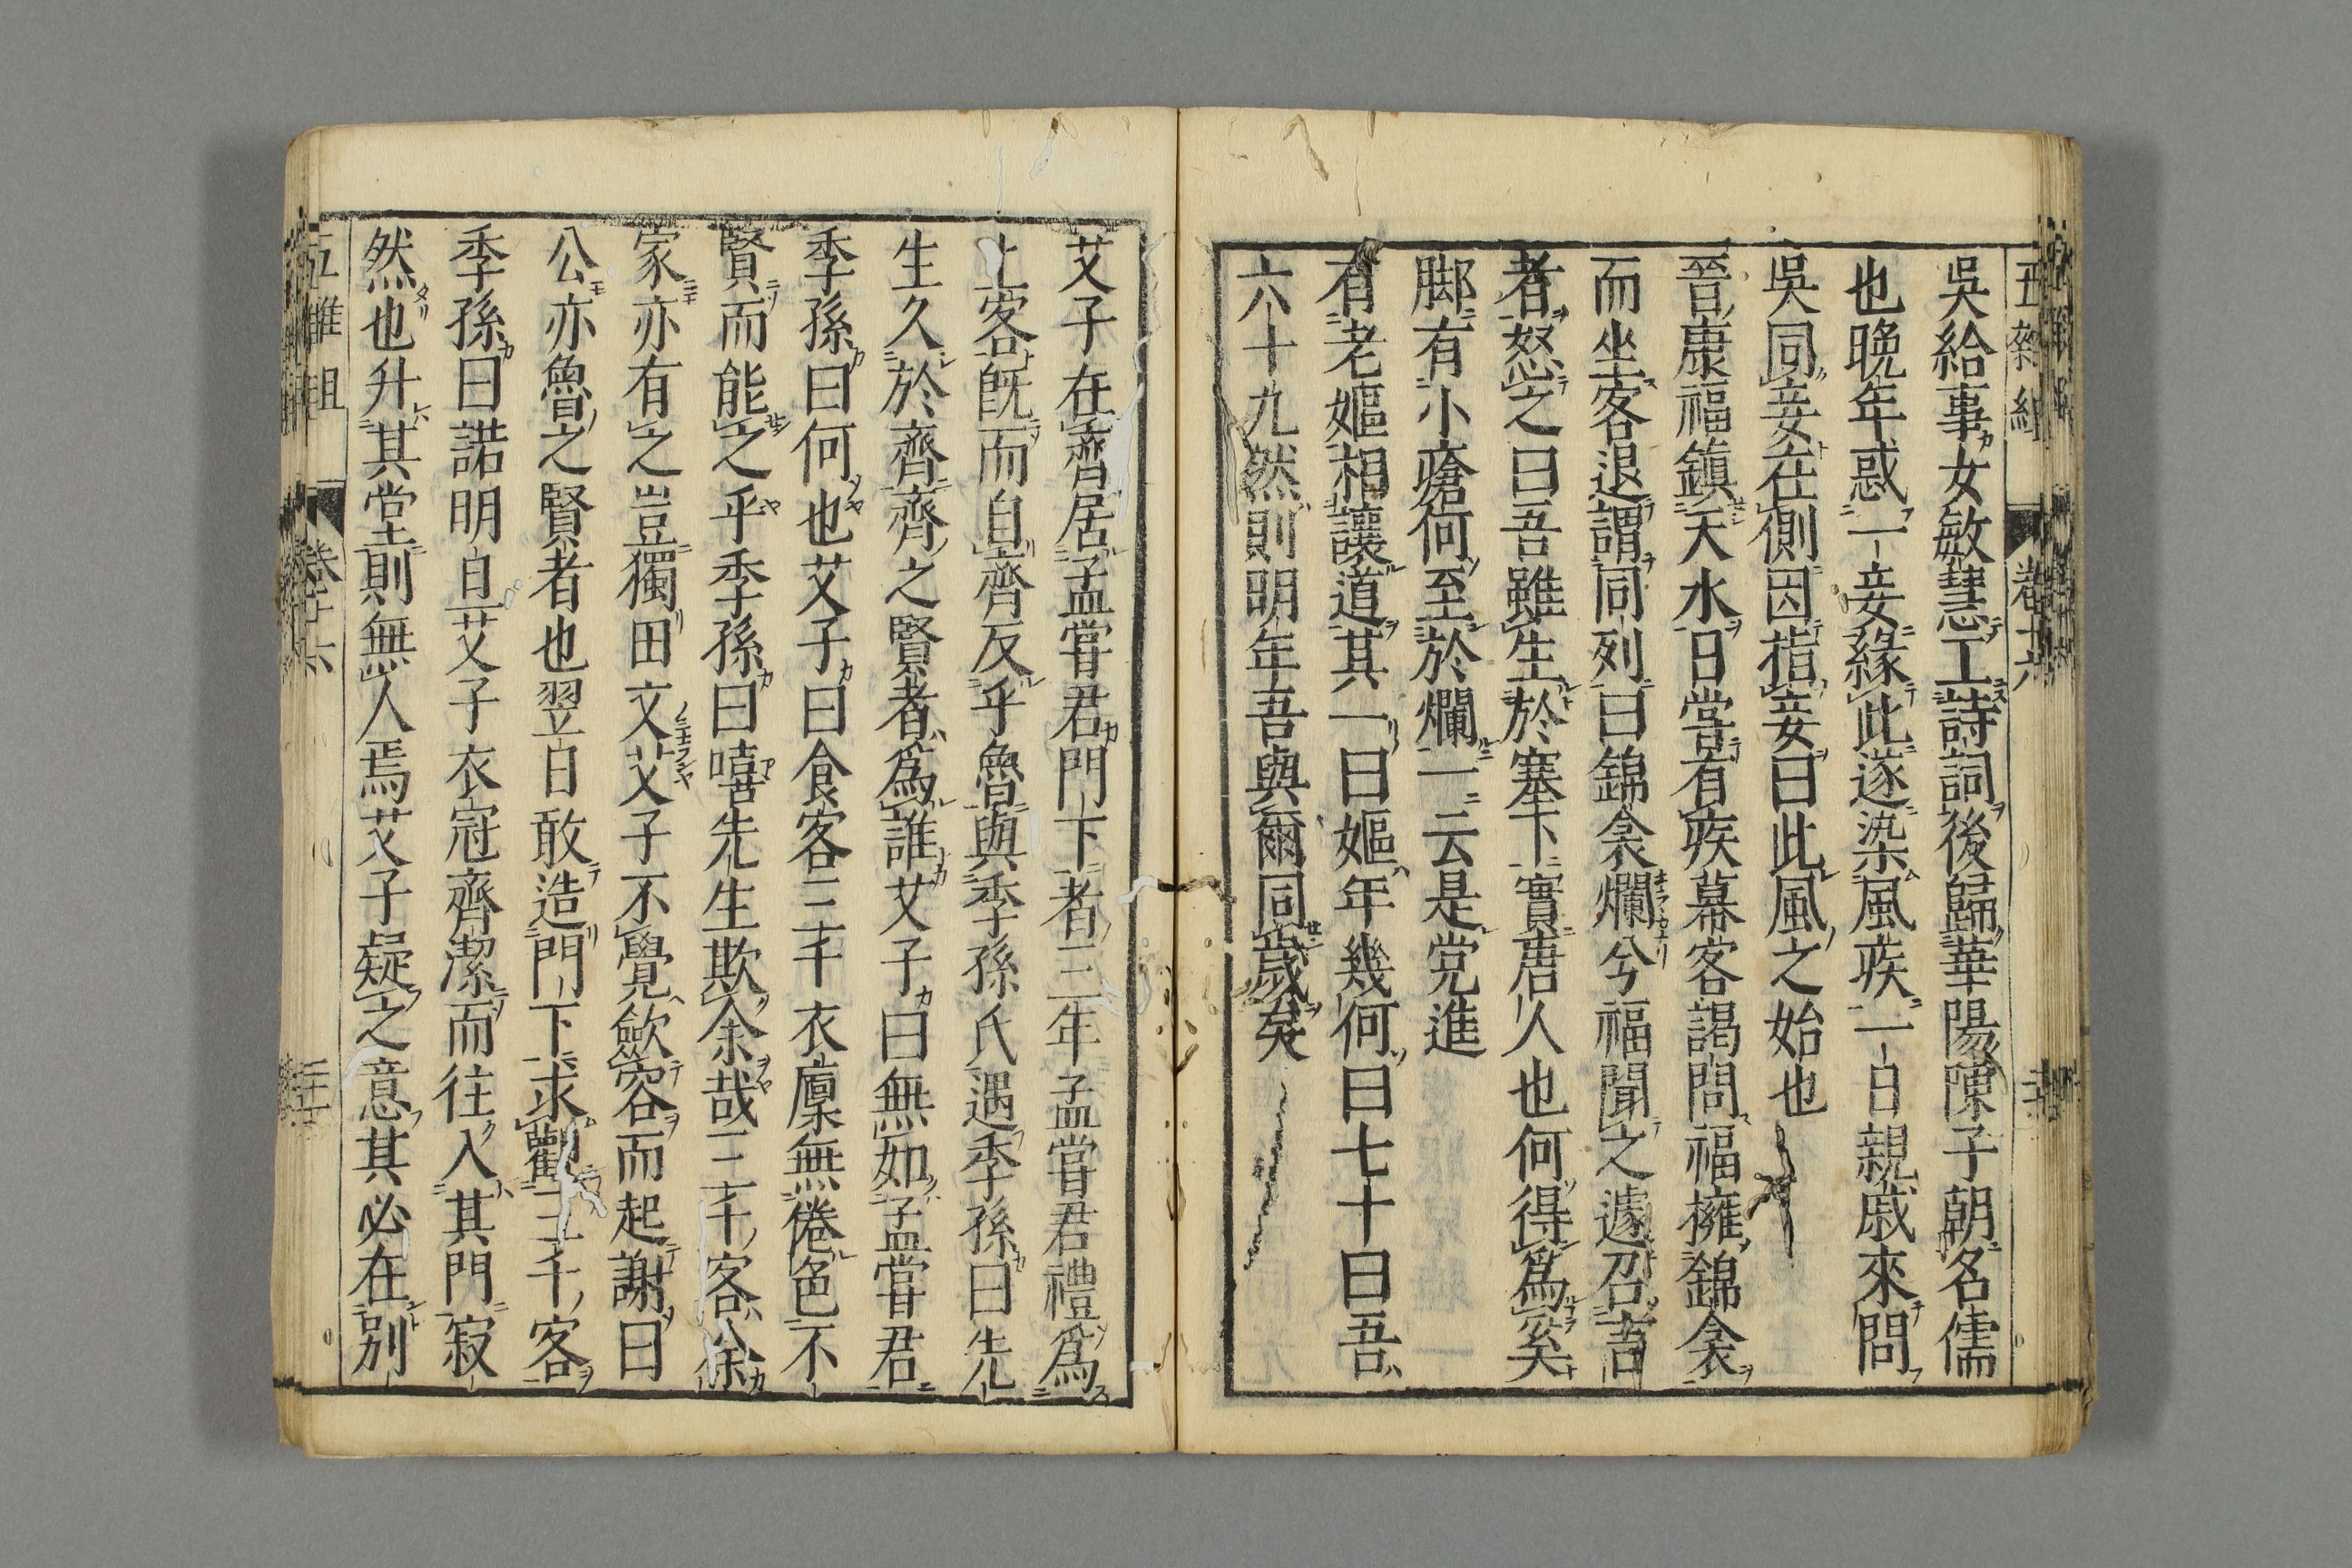 五雜組 卷十六
吳給事女敏慧工詩詞後歸華陽陳子朝名儒
也晚年惑一妾緣此遂染風疾一日親戚來問
吳同妾在側因指妾曰此風之始也
晉康福鎮天水日嘗有疾幕客謁問福擁錦衾
而坐客退謂同列曰錦衾爛兮福聞之遽召言
者怒之曰吾雖生於塞下實唐人也何得為奚
脚有小瘡何至於爛一云是党進
有老嫗相讓道其一曰嫗年幾何曰七十曰吾
六十九然則明年吾與爾同歲矣
艾子在齊居孟嘗君門下者三年孟嘗君禮爲
上客旣而自齊反乎魯與季孫氏遇季孫曰先
生久於齊齊之賢者爲誰艾子曰無如孟嘗君
季孫曰何也艾子曰食客三千衣廩無倦色不
賢而能之乎季孫曰嘻先生欺余哉三千客余
家亦有之豈獨田文艾子不覺歛容而起謝曰
公亦魯之賢者也翌日敢造門下求觀三千客
季孫曰諾明日艾子衣冠齊潔而往入其門寂
然也升其堂則無人焉艾子疑之意其必在別
五雜組 卷十六